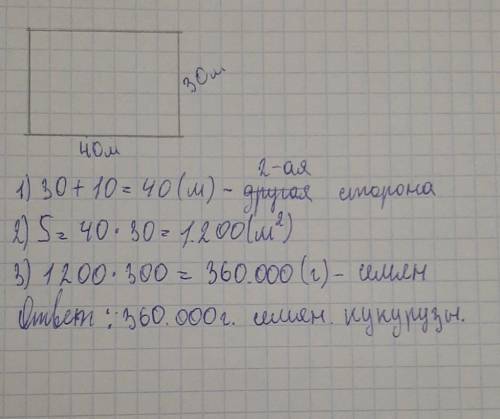 30м
40м
2-ая
1) 30 + 10 = 40 (м) - другая сторона
2) S = 40 · 30 = 1.200 (м²)
3) 1200 · 300 = 360.000 (г) - семян
Ответ : 360.000г. семян. кукурузы.